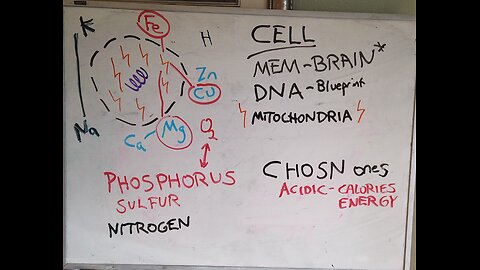 K
Fe
H
Zn
Cu
Na
Ca
Mg
O2
PHOSPHORUS
SULFUR
NITROGEN
CELL
MEM-BRAIN*
DNA-Blueprint
MITOCHONDRIA
CHOSN ones
ACIDIC-CALORIES
ENERGY